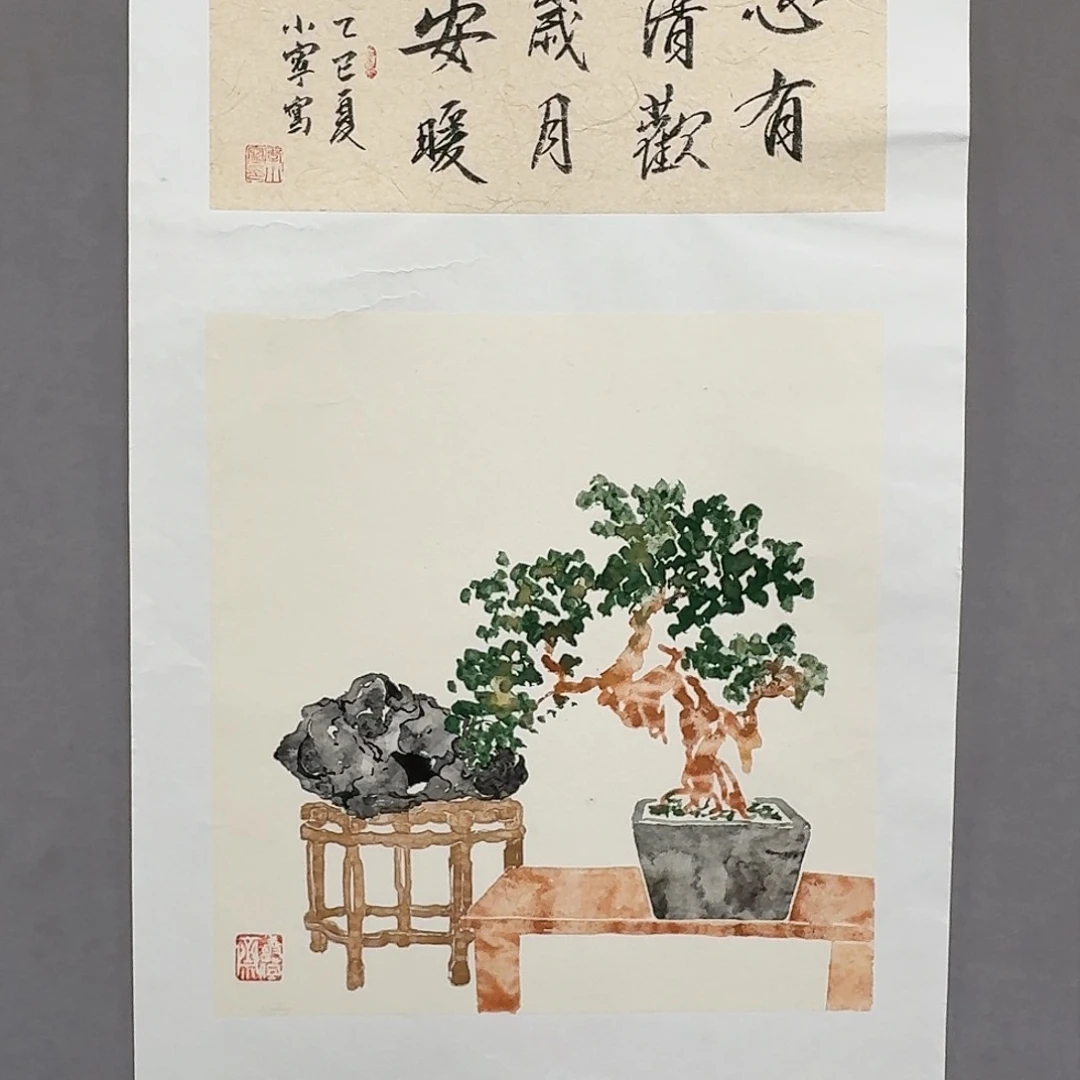 有
清歡
歲月
安暖
乙巳夏
小寧寫